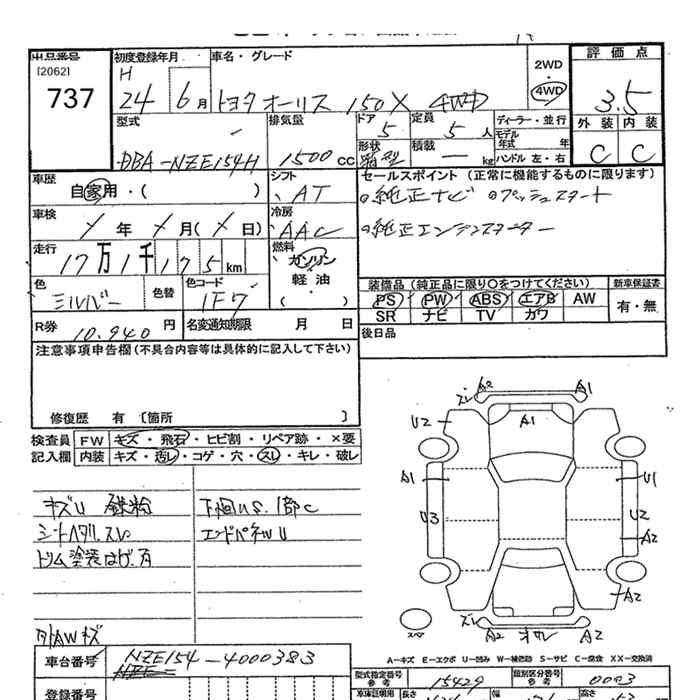 出品番号
[2062]
737
初度登録年月
H
24 6月
車名・グレード
トヨタ オーリス 150X 4WD
2WD
・
4WD
評価点
3.5
外装 内装
C C
型式
DBA-NZE154H
排気量
1500cc
ドア
5
定員
5人
形状
箱型
積載
ー kg
ディーラー・並行
モデル年式 年
ハンドル 左・右
車歴
自家用・( )
シフト
AT
車検
年 月( 日)
冷房
AAC
走行
17万1千175km
燃料
ガソリン
軽油
色
シルバー
色替
色コード
1F7
R券 10,940円
名変通知期限 月 日
セールスポイント (正常に機能するものに限ります)
純正ナビ プッシュスタート
純正エンジンスターター
装備品(純正品に限り○をつけてください)
新車保証書
PS PW ABS エアB AW
SR ナビ TV カワ
有・無
後日品
注意事項申告欄(不具合内容等は具体的に記入して下さい)
修復歴 有 〔箇所 〕
検査員記入欄
FW キズ・飛石・ヒビ割・リペア跡・×要
内装 キズ・汚レ・コゲ・穴・スレ・キレ・破レ
キズU
下回りS.1部C
シートヘタレ.スレ
エンドパネルU
ドリム塗装はげ.有
AWキズ
A1
U2
A1
A1
U1
U3
U2
A2
A2
A2 A2
A-キズ E-エクボ U-凹み W-補修跡 S-サビ C-腐食 XX-交換済
車台番号
NZE154-4000383
登録番号
型式指定番号
参考
15429
類別区分番号
参考
0003
車庫証明用
長さ
幅
高さ